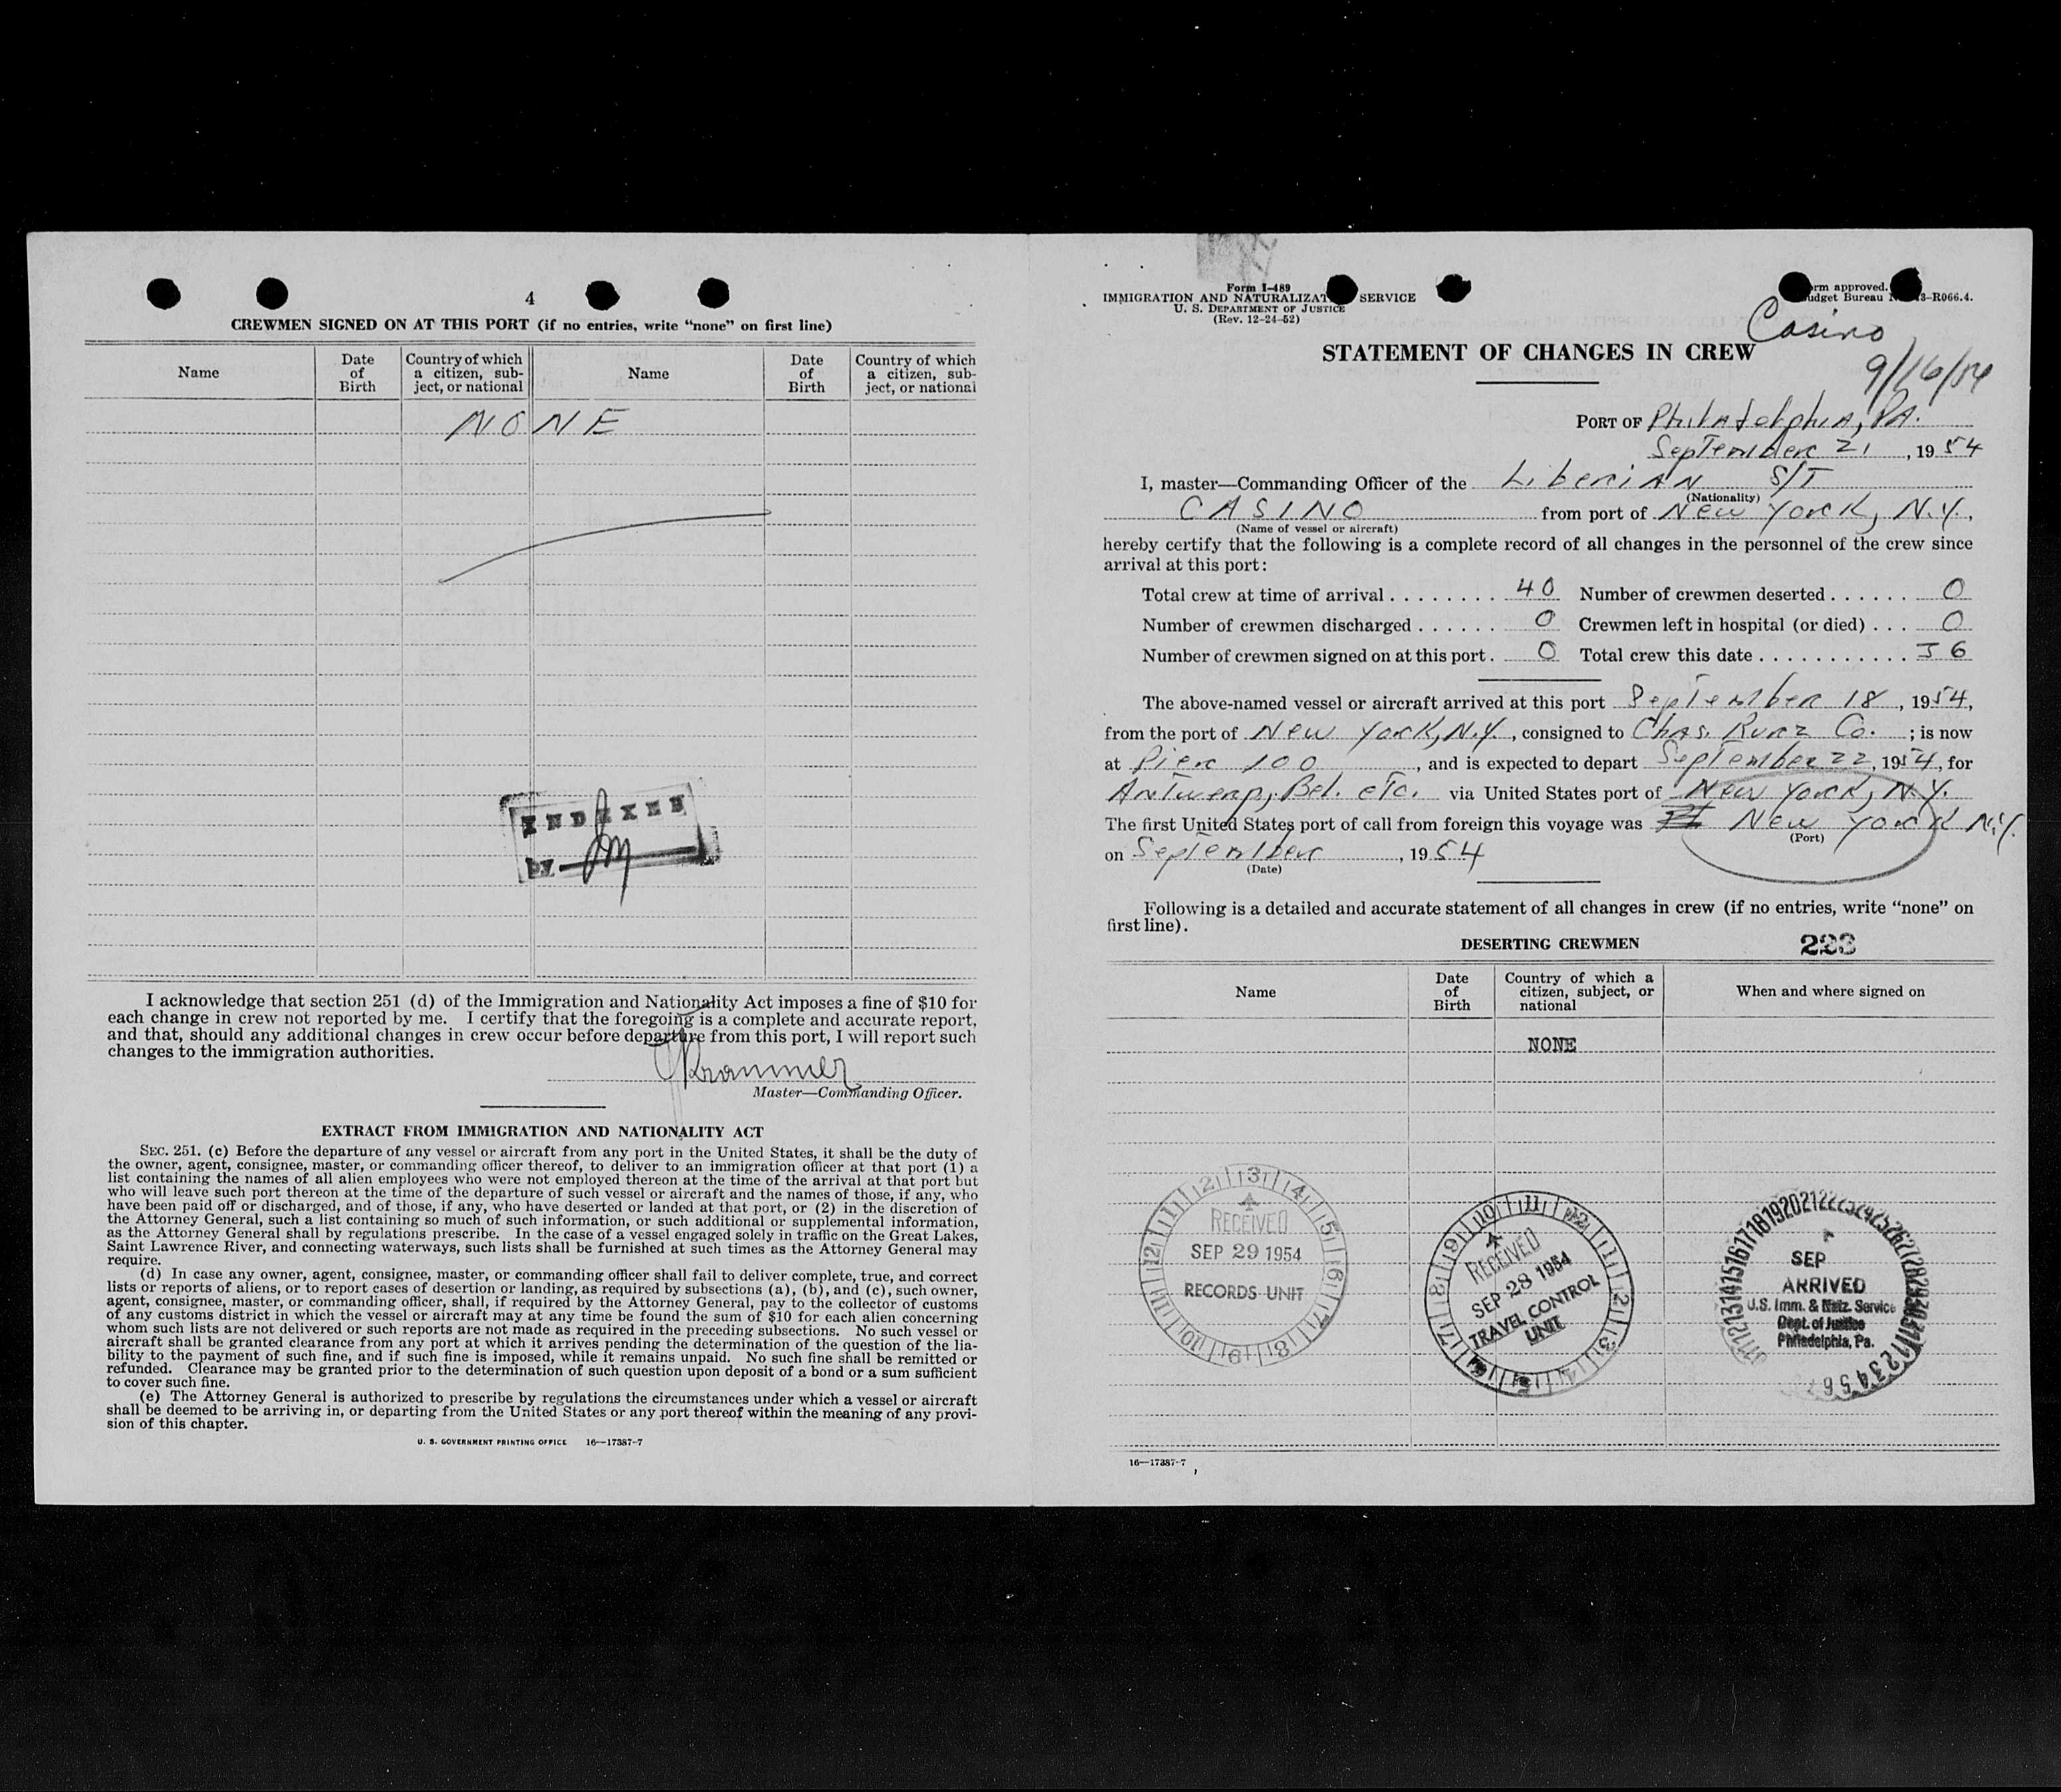 4
CREWMEN SIGNED ON AT THIS PORT (if no entries, write “none” on first line)
Name
Date of Birth
Country of which a citizen, sub-ject, or national
Name
Date of Birth
Country of which a citizen, sub-ject, or national
NONE
INDEXED
by
I acknowledge that section 251 (d) of the Immigration and Nationality Act imposes a fine of $10 for
each change in crew not reported by me. I certify that the foregoing is a complete and accurate report,
and that, should any additional changes in crew occur before departure from this port, I will report such
changes to the immigration authorities.
Master—Commanding Officer.
EXTRACT FROM IMMIGRATION AND NATIONALITY ACT
SEC. 251. (c) Before the departure of any vessel or aircraft from any port in the United States, it shall be the duty of
the owner, agent, consignee, master, or commanding officer thereof, to deliver to an immigration officer at that port (1) a
list containing the names of all alien employees who were not employed thereon at the time of the arrival at that port but
who will leave such port thereon at the time of the departure of such vessel or aircraft and the names of those, if any, who
have been paid off or discharged, and of those, if any, who have deserted or landed at that port, or (2) in the discretion of
the Attorney General, such a list containing so much of such information, or such additional or supplemental information,
as the Attorney General shall by regulations prescribe. In the case of a vessel engaged solely in traffic on the Great Lakes,
Saint Lawrence River, and connecting waterways, such lists shall be furnished at such times as the Attorney General may
require.
(d) In case any owner, agent, consignee, master, or commanding officer shall fail to deliver complete, true, and correct
lists or reports of aliens, or to report cases of desertion or landing, as required by subsections (a), (b), and (c), such owner,
agent, consignee, master, or commanding officer, shall, if required by the Attorney General, pay to the collector of customs
of any customs district in which the vessel or aircraft may at any time be found the sum of $10 for each alien concerning
whom such lists are not delivered or such reports are not made as required in the preceding subsections. No such vessel or
aircraft shall be granted clearance from any port at which it arrives pending the determination of the question of the lia-
bility to the payment of such fine, and if such fine is imposed, while it remains unpaid. No such fine shall be remitted or
refunded. Clearance may be granted prior to the determination of such question upon deposit of a bond or a sum sufficient
to cover such fine.
(e) The Attorney General is authorized to prescribe by regulations the circumstances under which a vessel or aircraft
shall be deemed to be arriving in, or departing from the United States or any port thereof within the meaning of any provi-
sion of this chapter.
U. S. GOVERNMENT PRINTING OFFICE 16—17387-7
Form I-489
IMMIGRATION AND NATURALIZAT SERVICE
U. S. DEPARTMENT OF JUSTICE
(Rev. 12-24-52)
rm approved.
udget Bureau N 3-R066.4.
Casino
9/16/54
STATEMENT OF CHANGES IN CREW
PORT OF Philadelphia, PA.
September 21, 1954
I, master—Commanding Officer of the Liberian S/T
(Nationality)
CASINO from port of New York, N.Y.,
(Name of vessel or aircraft)
hereby certify that the following is a complete record of all changes in the personnel of the crew since
arrival at this port:
Total crew at time of arrival . . . . . . . . 40 Number of crewmen deserted . . . . . . 0
Number of crewmen discharged . . . . . . 0 Crewmen left in hospital (or died) . . . 0
Number of crewmen signed on at this port . 0 Total crew this date . . . . . . . . . . . 36
The above-named vessel or aircraft arrived at this port September 18, 1954,
from the port of New York, N.Y., consigned to Chas. Kurz Co. ; is now
at Pier 100, and is expected to depart September 22, 1954, for
Antwerp, Bel. etc. via United States port of New York, N.Y.
The first United States port of call from foreign this voyage was New York N.Y.
(Port)
on September, 1954
(Date)
Following is a detailed and accurate statement of all changes in crew (if no entries, write “none” on
first line).
DESERTING CREWMEN 223
Name
Date of Birth
Country of which a citizen, subject, or national
When and where signed on
NONE
RECEIVED
SEP 29 1954
RECORDS UNIT
RECEIVED
SEP 28 1954
TRAVEL CONTROL
UNIT
SEP
ARRIVED
U.S. Imm. & Natz. Service
Dept. of Justice
Philadelphia, Pa.
16—17387-7